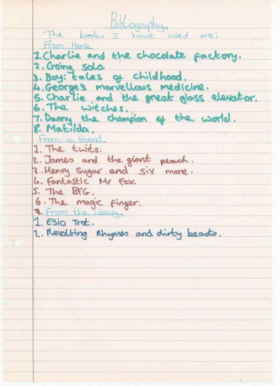 Bibliography.
The books I have used are:
From Home
1. Charlie and the chocolate factory.
2. Going solo
3. Boy: tales of childhood.
4. George's marvellous medicine.
5. Charlie and the great glass elevator.
6. The witches.
7. Danny the champion of the world.
8. Matilda.
From a friend
1. The twits.
2. James and the giant peach.
3. Henry Sugar and six more.
4. Fantastic Mr Fox.
5. The BFG.
6. The magic finger.
From the library
1. Esio Trot.
2. Revolting Rhymes and dirty beasts.